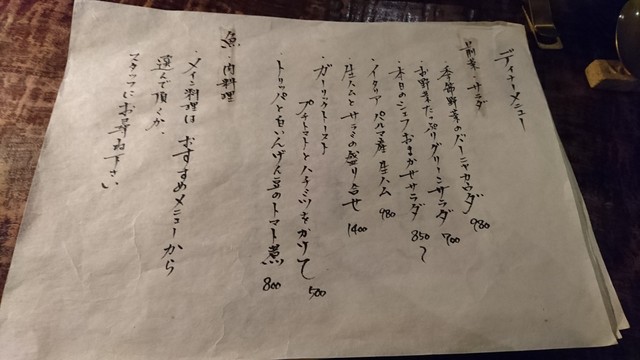 ディナーメニュー
前菜・サラダ
・季節野菜のバーニャカウダ 980
・お野菜たっぷりグリーンサラダ 700
・本日のシェフおまかせサラダ 850〜
・イタリアパルマ産生ハム 980
・生ハムとサラミの盛り合せ 1400
・ガーリックトースト
プチトマトとハチミツをかけて 500
・トリッパと白いんげん豆のトマト煮 800
魚・肉料理
・メイン料理は おすすめメニューから
選んで頂くか、
スタッフにお尋ね下さい